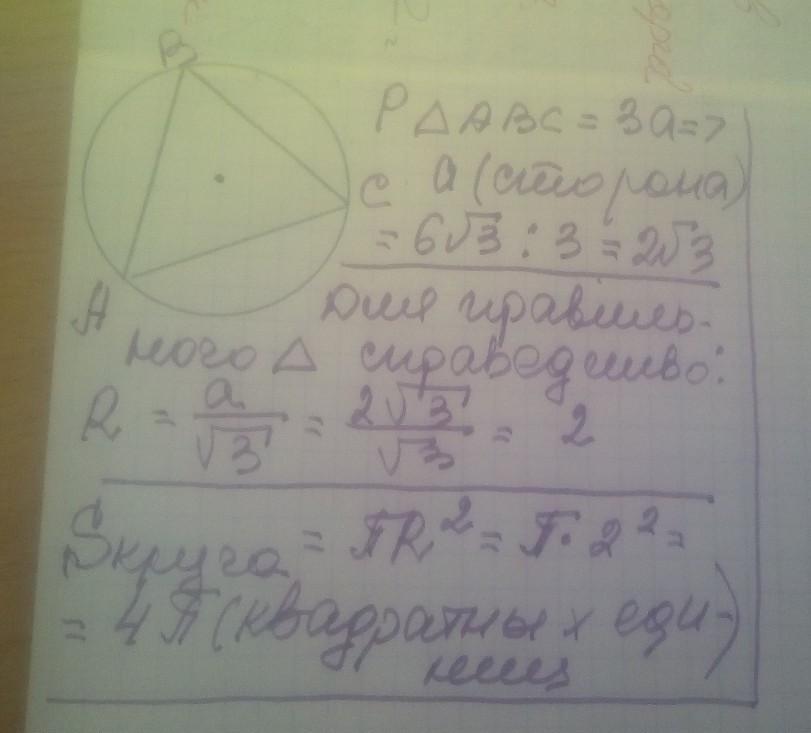 B
C
A
P △ABC = 3a =>
a (сторона)
= 6√3 : 3 = 2√3
Для правиль-
ного △ справедливо:
R = a/√3 = 2√3/√3 = 2
Sкруга = πR² = π · 2² =
= 4π (квадратных еди-
ниц)